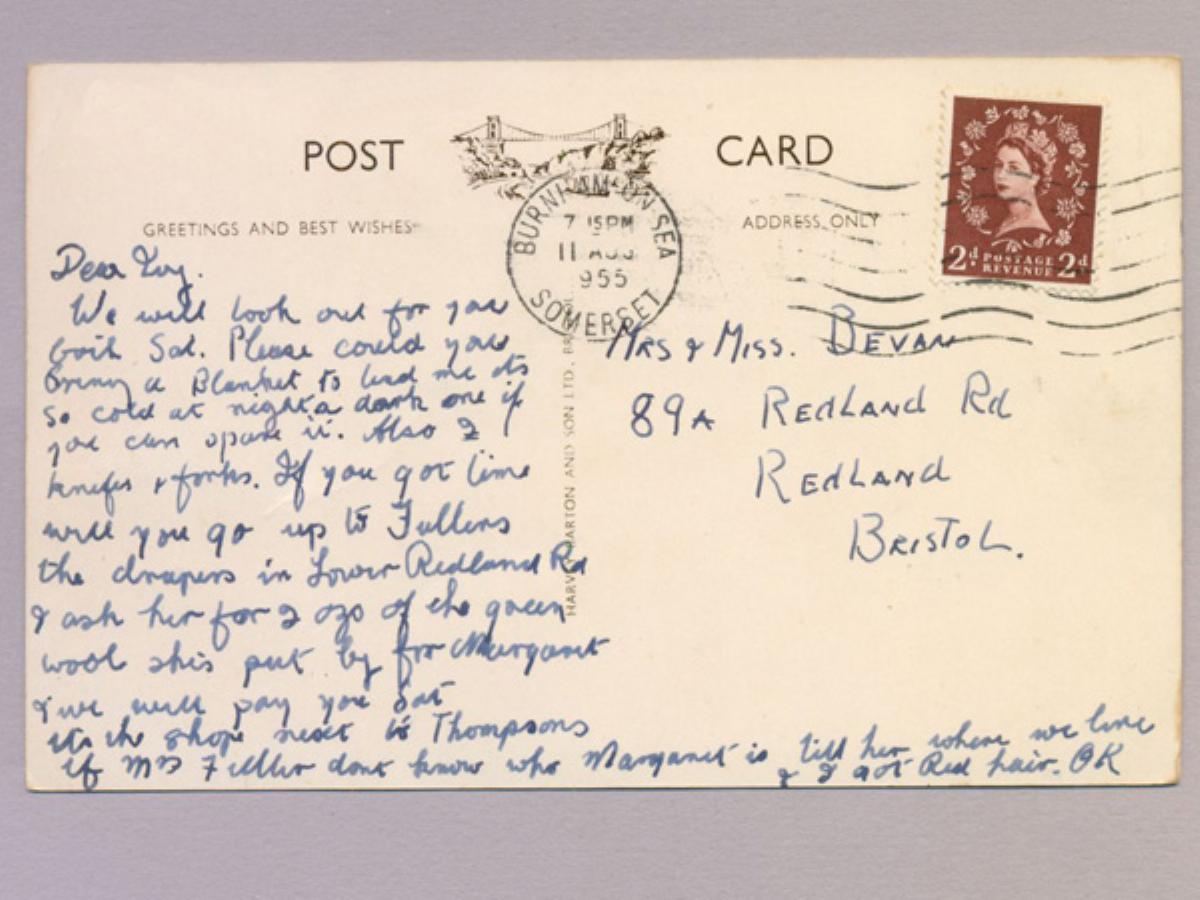 POST CARD
GREETINGS AND BEST WISHES
ADDRESS ONLY
BURNHAM-ON-SEA
7 15PM
11 AUG
955
SOMERSET
2d POSTAGE 2d
REVENUE
HARVEY BARTON AND SON LTD., BR
Dear Ivy.
We will look out for you
both Sat. Please could you
bring a Blanket to lend me its
so cold at night a dark one if
you can spare it. Also 2
knifes & forks. If you got time
will you go up to Fullers
the drapers in Lower Redland Rd
& ask her for 2 ozs of the green
wool shis put by for Margaret
& we will pay you Sat
its the shope next to Thompsons
if Mrs Fuller dont know who Margaret is tell her where we live
& I got Red hair. OK
MRS & MISS. BEVAN
89A REdLANd Rd
REdLANd
BRISTOL.